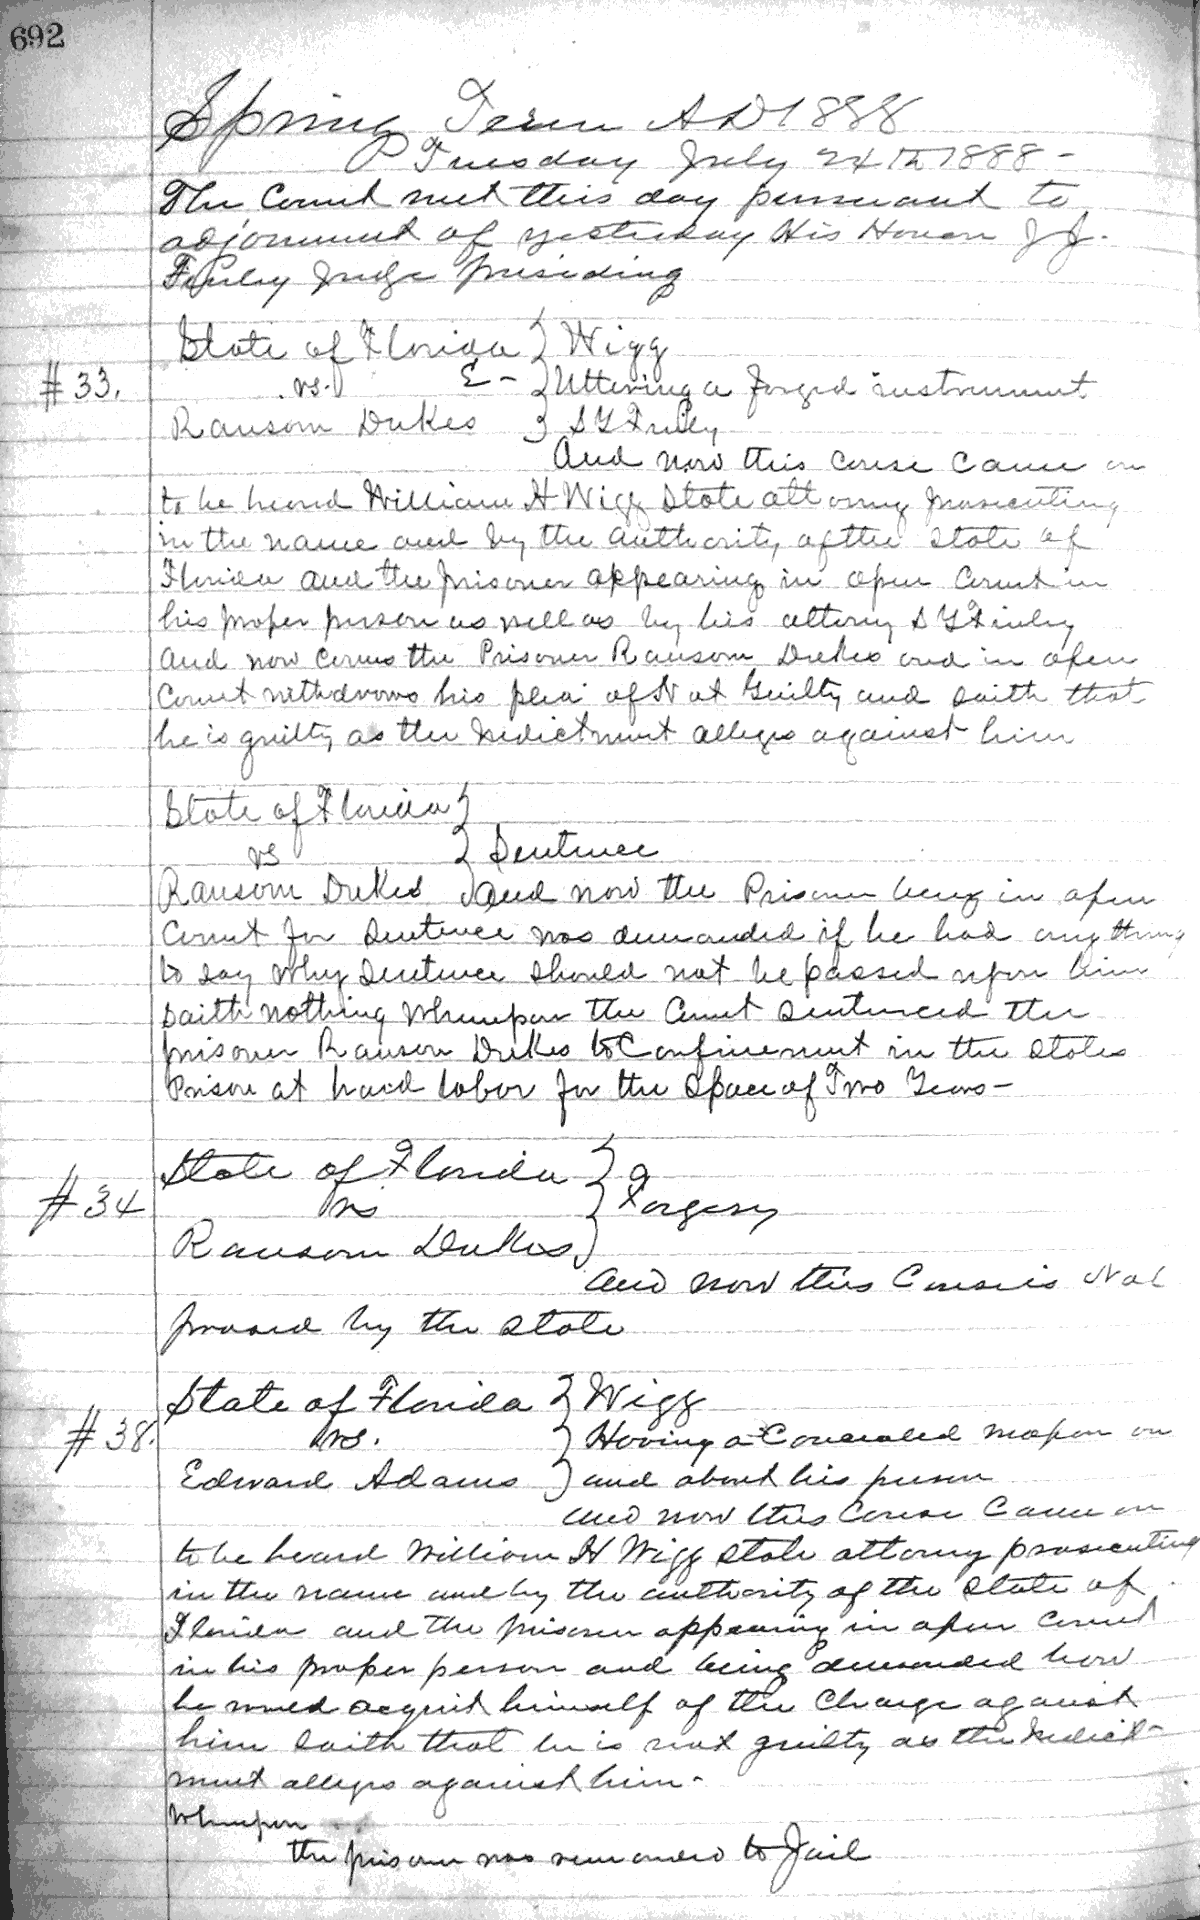 692
Spring Term AD 1888
Tuesday July 24th 1888-
The Court met this day pursuant to
adjornment of yesterday His Honor J J.
Finley Judge presiding
State of Florida } Wigg
#33. vs. E- } Uttering a forged instrument
Ransom Dukes } S Y Finley
And now this cause came on
to be heard William H Wigg State attorney prosecuting
in the name and by the authority of the State of
Florida and the prisoner appearing in open Court in
his proper person as well as by his attorny S Y Finley
and now comes the Prisoner Ransom Dukes and in open
Court withdraws his plea of Not Guilty and saith that
he is guilty as the Indictment alleges against him
State of Florida }
vs } Sentence
Ransom Dukes } And now the Prisoner being in open
Court for Sentence was demanded if he had anything
to say why Sentence should not be passed upon him
saith nothing whereupon the Court sentenced the
prisoner Ransom Dukes to Confinement in the States
Prison at hard labor for the space of Two Years-
State of Florida }
#34 vs } Forgery
Ransom Dukes }
and now this Cause is Nol
prosed by the State
State of Florida } Wigg
#38. vs. } Having a Concealed weapon on
Edward Adams } and about his person
and now this Cause Came on
to be heard William H Wigg State attorny prosecuting
in the name and by the authority of the State of
Florida and the prisoner appearing in open Court
in his proper person and being demanded how
he would acquit himself of the Charge against
him saith that he is not guilty as the Indict-
ment alleges against him-
Whereupon
the prisoner was remanded to Jail